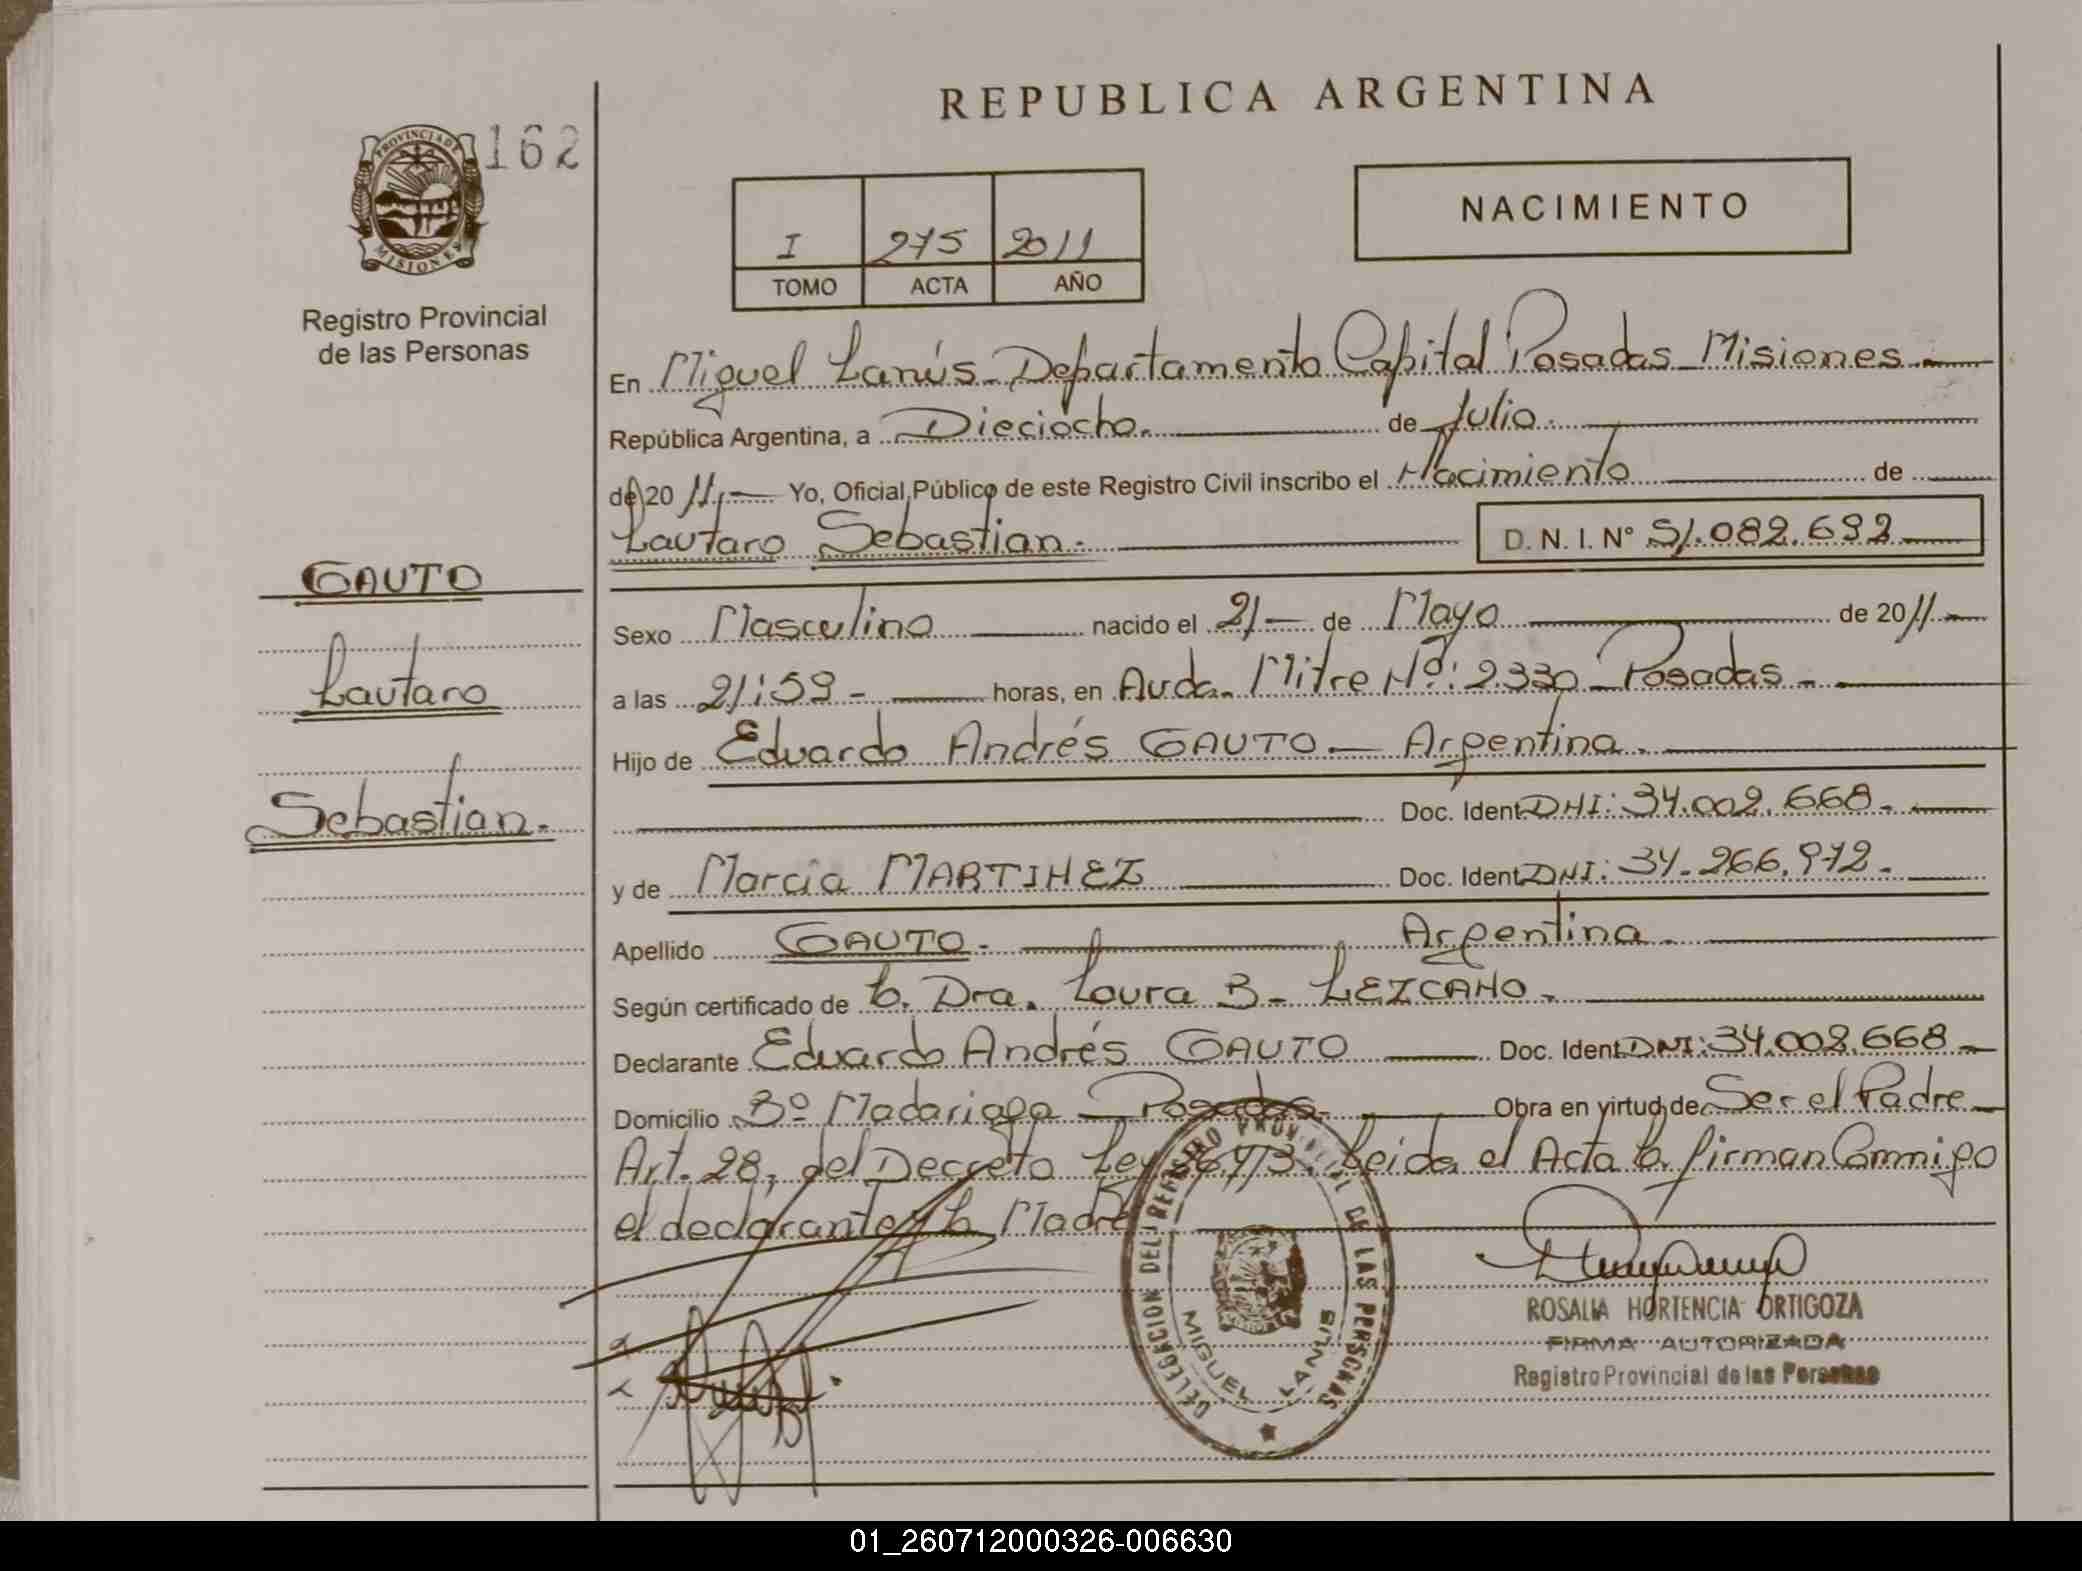 REPUBLICA ARGENTINA
PROVINCIA DE MISIONES
162
NACIMIENTO
I 275 2011
TOMO ACTA AÑO
Registro Provincial
de las Personas
En Miguel Lanús - Departamento Capital Posadas - Misiones -
República Argentina, a Dieciocho. de Julio.
de 20 11.- Yo, Oficial Público de este Registro Civil inscribo el Nacimiento de
Lautaro Sebastian.- D. N. I. N° 51.082.692
GAUTO
Lautaro
Sebastian.-
Sexo Masculino nacido el 21 - de Mayo de 2011.-
a las 21:59 - horas, en Avda. Mitre Nº: 2.330 - Posadas -
Hijo de Eduardo Andrés GAUTO - Argentina.
Doc. Ident. DNI: 34.002.668.-
y de Marcia MARTINEZ Doc. Ident. DNI: 34.266.972.-
Apellido GAUTO.- Argentina.
Según certificado de la Dra. Laura B. LEZCANO.
Declarante Eduardo Andrés GAUTO Doc. Ident. DNI: 34.002.668 -
Domicilio Bº Madariaga - Posadas. Obra en virtud de Ser el Padre -
Art. 28, del Decreto Ley Leida el Acta la firman Conmigo
el declarante y la Madre
DELEGACION DEL REGISTRO PROVINCIAL DE LAS PERSONAS
MIGUEL LANUS
ROSALIA HORTENCIA ORTIGOZA
FIRMA AUTORIZADA
Registro Provincial de las Personas
01_260712000326-006630